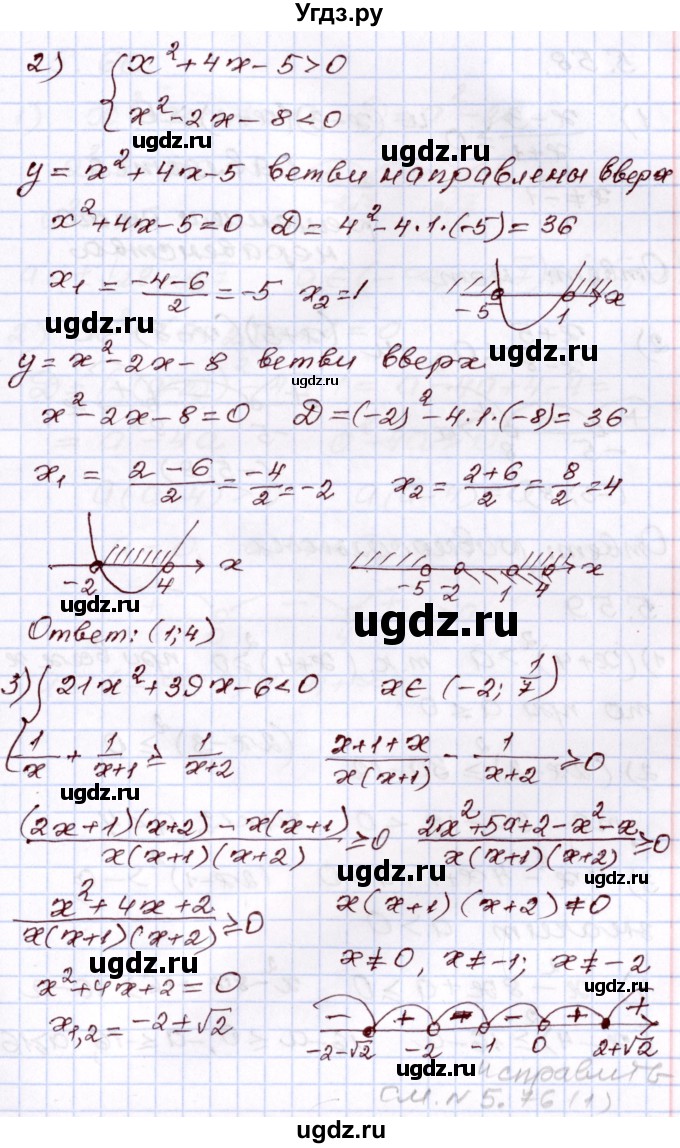 Угдз.ру
2) { x² + 4x - 5 > 0
x² - 2x - 8 < 0
ugdz.ru
y = x² + 4x - 5 ветви направлены вверх
ugdz.ru
x² + 4x - 5 = 0 D = 4² - 4·1·(-5) = 36
x₁ = (-4-6)/2 = -5 x₂ = 1
-5 1 x
ugdz.ru
ugdz.ru
y = x² - 2x - 8 ветви вверх
ugdz.ru
x² - 2x - 8 = 0 D = (-2)² - 4·1·(-8) = 36
x₁ = (2-6)/2 = -4/2 = -2 x₂ = (2+6)/2 = 8/2 = 4
-2 4 x
-5 -2 1 4 x
ugdz.ru
ugdz.ru
Ответ: (1; 4)
3) { 21x² + 39x - 6 < 0 x ∈ (-2; 1/7)
1/x + 1/(x+1) ≥ 1/(x+2) (x+1+x)/(x(x+1)) - 1/(x+2) ≥ 0
ugdz.ru
((2x+1)(x+2) - x(x+1))/(x(x+1)(x+2)) ≥ 0 (2x²+5x+2-x²-x)/(x(x+1)(x+2)) ≥ 0
ugdz.ru
(x²+4x+2)/(x(x+1)(x+2)) ≥ 0 x(x+1)(x+2) ≠ 0
ugdz.ru
x ≠ 0, x ≠ -1; x ≠ -2
x² + 4x + 2 = 0
x₁,₂ = -2 ± √2
- + - - + +
-2-√2 -2 -1 0 2+√2
ugdz.ru
исправить
см. N 5.76 (1)